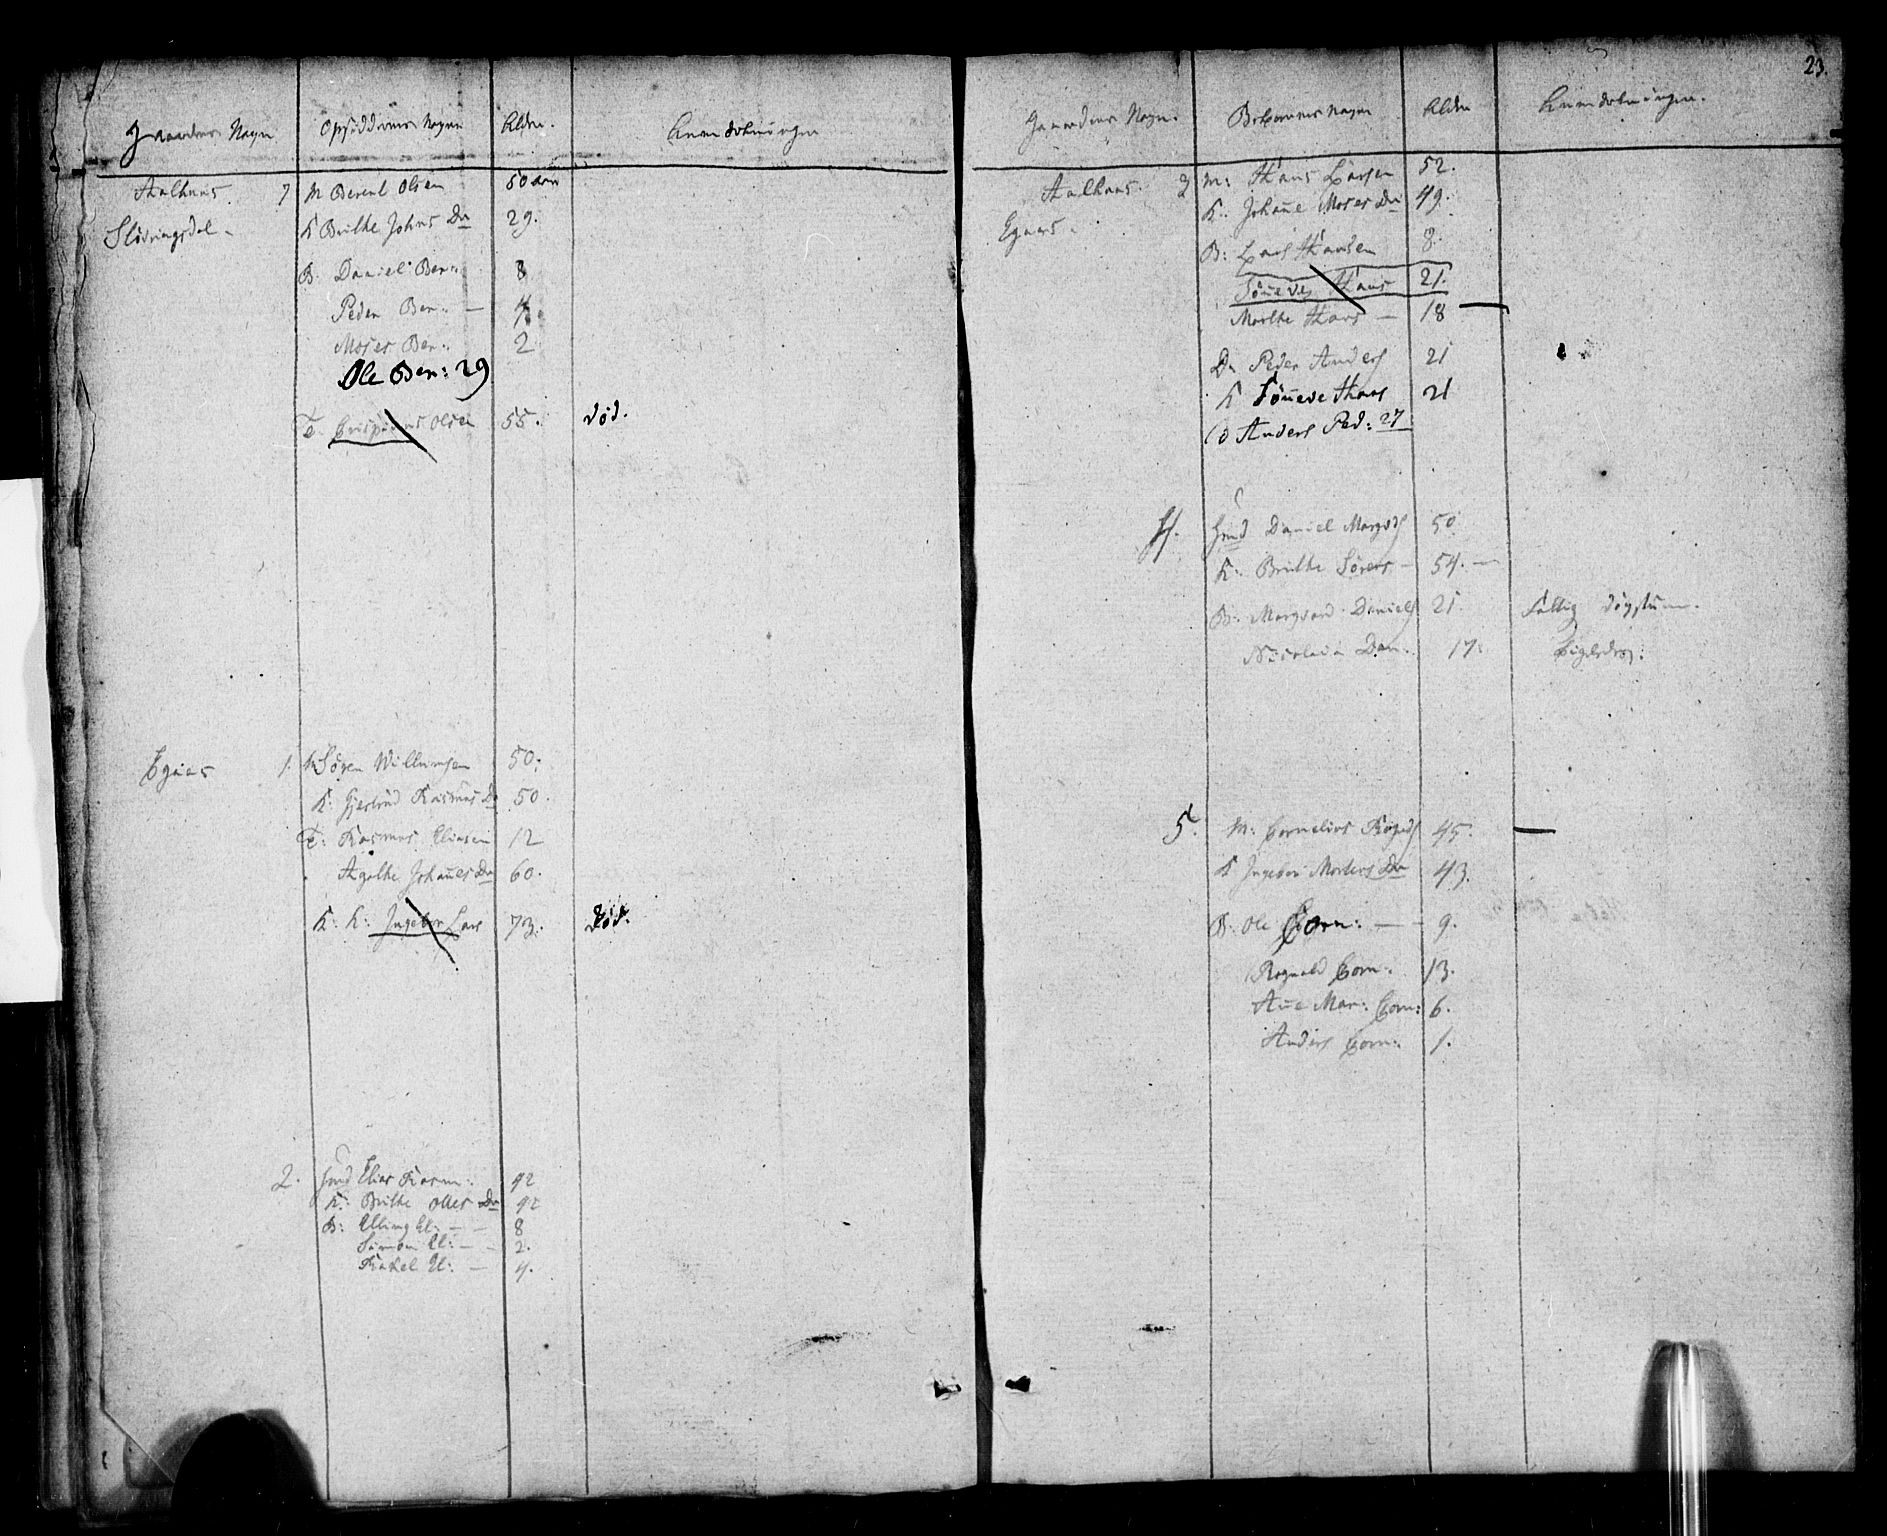 Gaardens Nagn Opsiddernes Nagne Alder. Anmerkninger
Aalhuus 7 M Berent Olsen 50 aar
Slövringsdal - K Brithe Johns Dr 29.
B: Daniel Ber: 8
Peder Ber: — 4
Moses Ber: 2
Ole Ber: 29
Olsen 55. død.
Egaas 1. M Sören Willumsen 50.
K: Gjertrud Rasmus Dr 50.
T: Rasmus Eliasen 12
Agathe Johanes Dr 60.
K: K: Ingebor Lars 73. død.
2. Elias Rasm: 42
K: Brithe Olles Dr 42
B: Elling El: — 8
Simon El: — 2.
Rakel El: — 4.
23.
Gaardens Nagn. Beboernes Nagn Alder Anmerkninger.
Aalhuus. 3 M: Hans Larsen 52.
Egaas - K: Johane Moses Dr 49.
B: Lars Hansen 8.
Söneve Hans 21.
Marthe Hans — 18 —
D: Peder Anders 21
K Söneve Hans 21
Anders Ped: 27
4. Daniel Margvds 50
K: Brithe Sörens — 54. —
B: Margvard Daniels 21. Fattig døvstum.
Nicolai Dan: 17: ligeledes.
5. M: Cornelius Rognds 45. —
K Ingebor Mortens Dr 43.
B: Ole Corn: — 9.
Rognald Corn: 13.
Ane Mar: Corn: 6.
Anders Corn: 1.